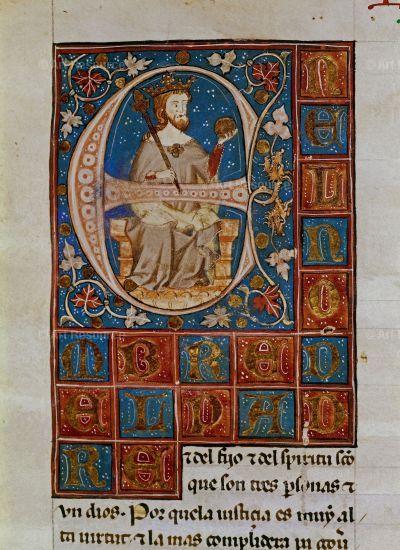 E N
E L
N
O
M B R E D
E L P A D
R E
⁊ del fijo ⁊ del spiritu sc̃o
que son tres p̱sonas ⁊
vn dios. Por que la iusticia es muy al
ta virtut ⁊ la mas complidera pa gou̾